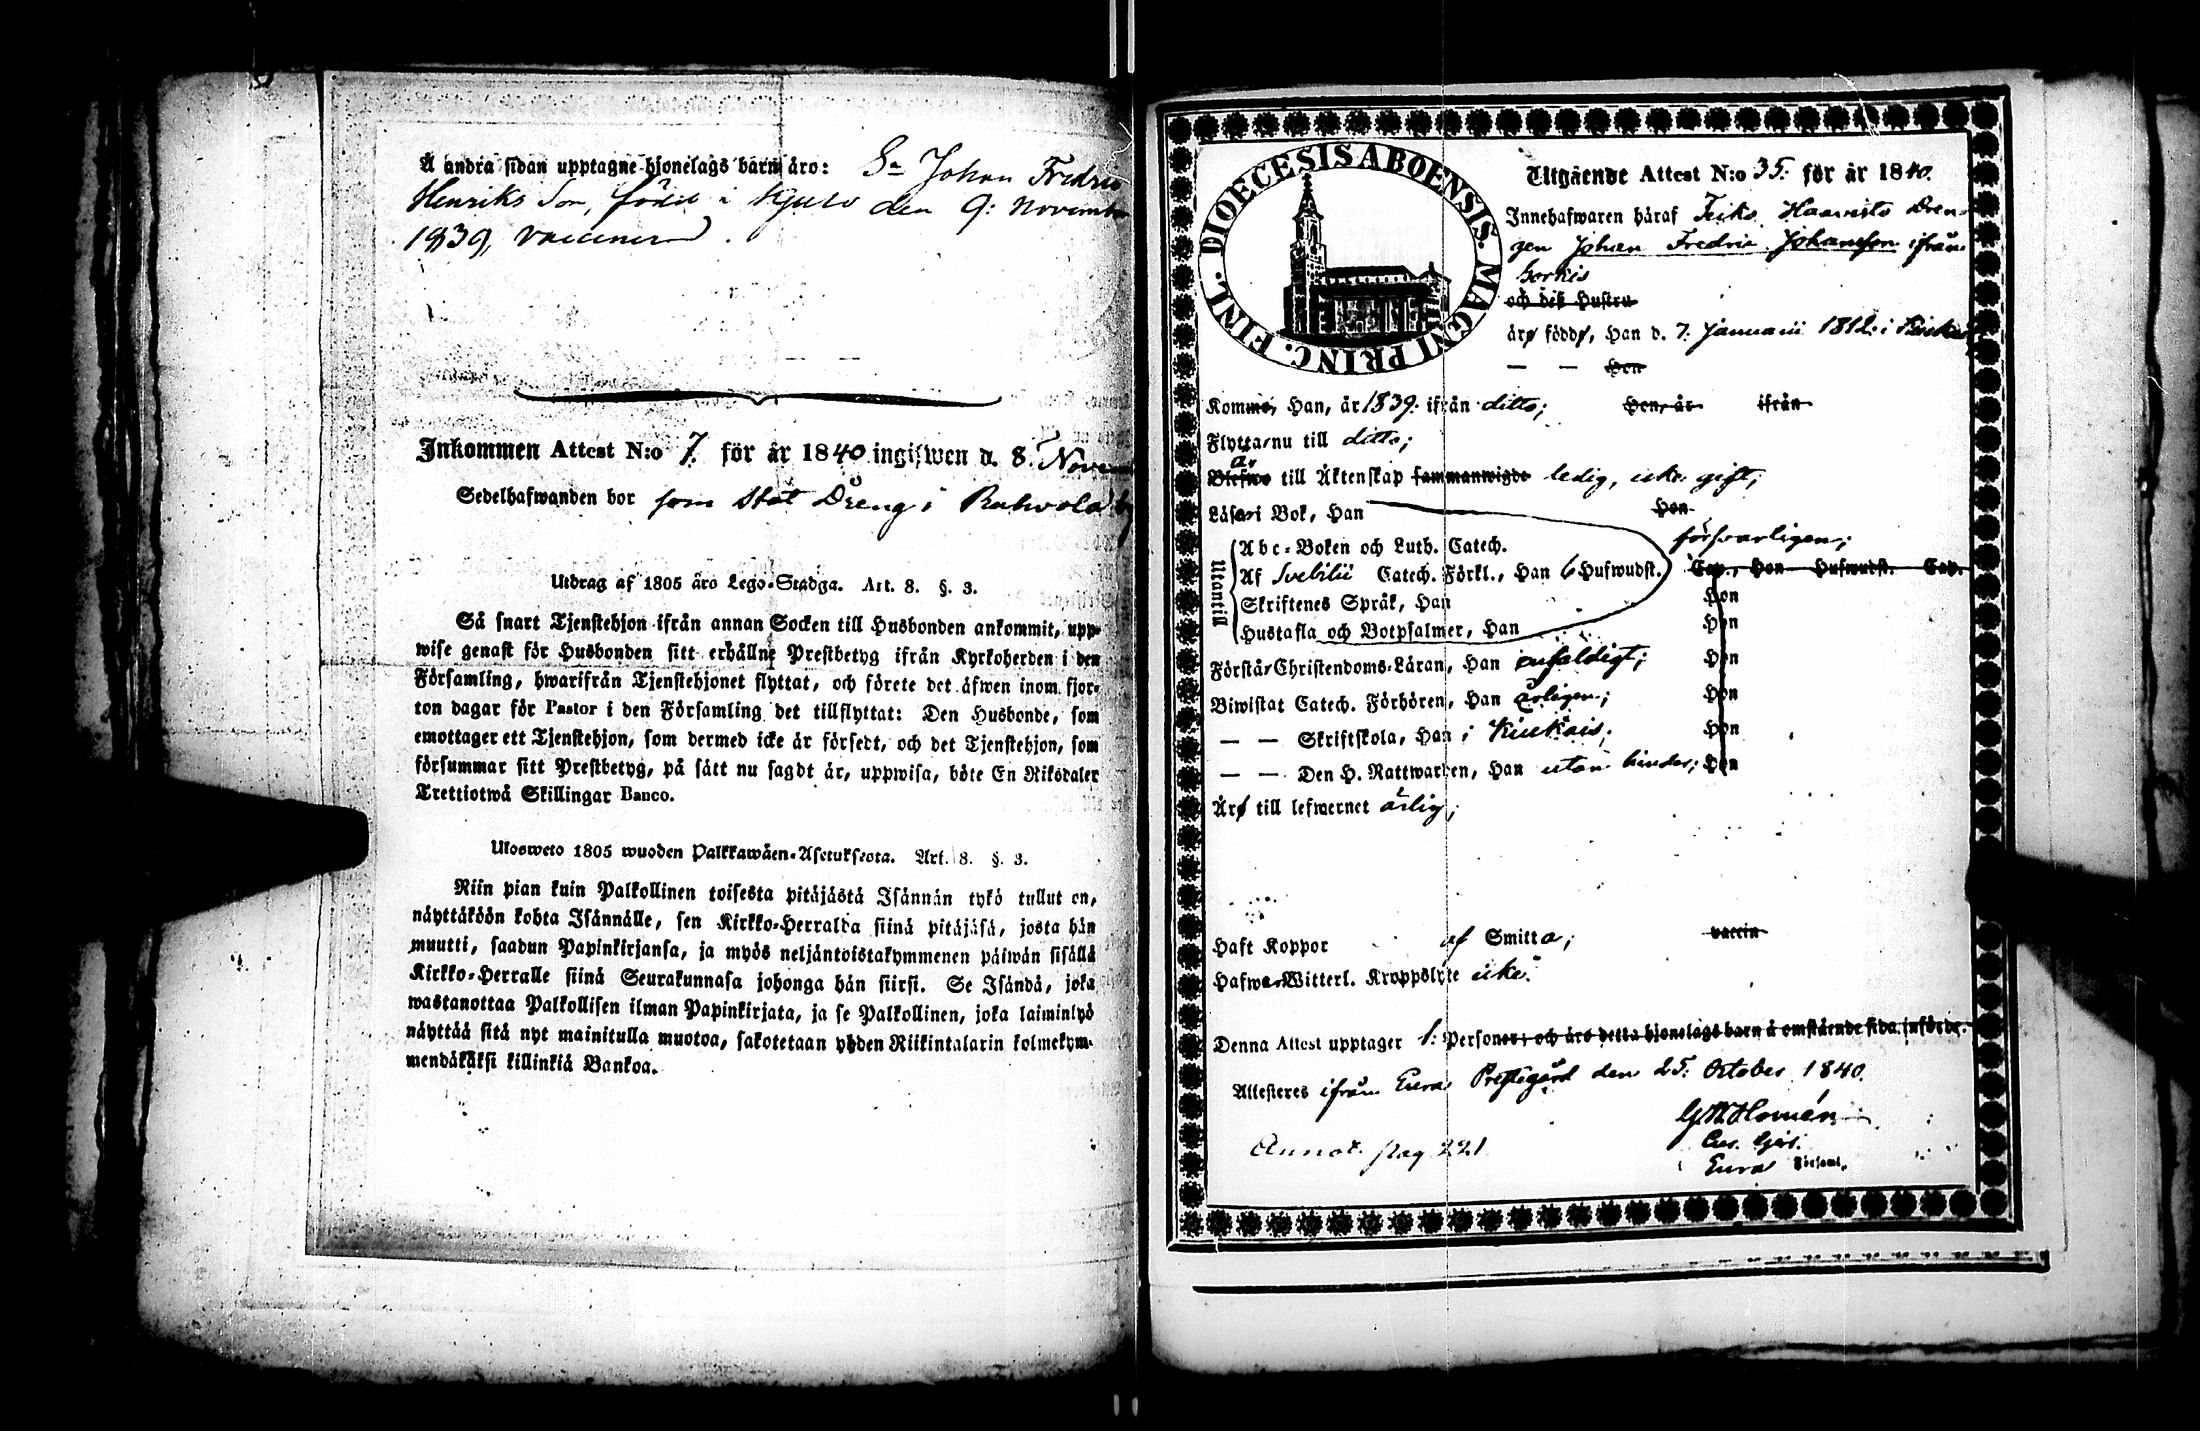 Å andra sidan upptagne hjonelags barn äro: Sn Johan Fredric
Henriks Son, född i Kjulo den 9: November
1839, vaccinerad.
Inkommen Attest N:o 7. för år 1840 ingifwen d. 8. Novem
Sedelhafwanden bor som Stat Dräng i
Utdrag af 1805 års Lego-Stadga. Art. 8. §. 3.
Så snart Tjenstehjon ifrån annan Socken till Husbonden ankommit, upp-
wise genast för Husbonden sitt erhållne Prestbetyg ifrån Kyrkoherden i den
Församling, hwarifrån Tjenstehjonet flyttat, och förete det äfwen inom fjor-
ton dagar för Pastor i den Församling det tillflyttat: Den Husbonde, som
emottager ett Tjenstehjon, som dermed icke är försedt, och det Tjenstehjon, som
försummar sitt Prestbetyg, på sätt nu sagdt är, uppwisa, böte En Riksdaler
Trettiotwå Skillingar Banco.
Ulosweto 1805 wuoden Palkkawäen-Asetuksesta. Art. 8. §. 3.
Niin pian kuin Palkollinen toisesta pitäjästä Isännän tykö tullut on,
näyttäköön kohta Isännälle, sen Kirkko-Herralda siinä pitäjäsä, josta hän
muutti, saadun Papinkirjansa, ja myös neljäntoistakymmenen päiwän sisällä
Kirkko-Herralle siinä Seurakunnasa johonga hän siirsi. Se Isändä, joka
wastanottaa Palkollisen ilman Papinkirjata, ja se Palkollinen, joka laiminlyö
näyttää sitä nyt mainitulla muotoa, sakotetaan yhden Riikintalarin kolmekym-
mendäkaksi killinkiä Bankoa.
DIOECESIS ABOENSIS. MAGNI PRINC. FINL.
Utgående Attest N:o 35. för år 1840.
Innehafwaren häraf Haavisto Dren-
gen Johan Fredric Johansson ifrån
och deß Hustru
äro födde, Han d. 7. Januarii 1812. i
— — Hon
Komme, Han, år 1839. ifrån ditto; Hon, år ifrån
Flyttar nu till ditto;
är
Blefwo till Äktenskap sammanwigde ledig, icke gift;
Läsa i Bok, Han Hon
försvarligen;
Utantill
Abc-Boken och Luth. Catech.
Af Svebilii Catech. Förkl., Han 6 Hufwudst. Cap., Hon Hufwudst. Cap.
Skriftenes Språk, Han Hon
Hustafla och Botpsalmer, Han Hon
Förstår Christendoms-Läran, Han enfaldigt; Hon
Biwistat Catech. Förhören, Han årligen; Hon
— — Skriftskola, Han i Kiukais; Hon
— — Den H. Nattwarden, Han utan hinder; Hon
Äro till lefwernet ärlig;
Haft Koppor af Smitta; vaccin
Hafwa Witterl. Kroppslyte icke.
Denna Attest upptager 1. Personer; och äro detta hjonelags barn å omstående sida införde.
Attesteres ifrån Eura Prestegård den 25. October 1840.
Homén
Eura Församl.
Annot. pag 221